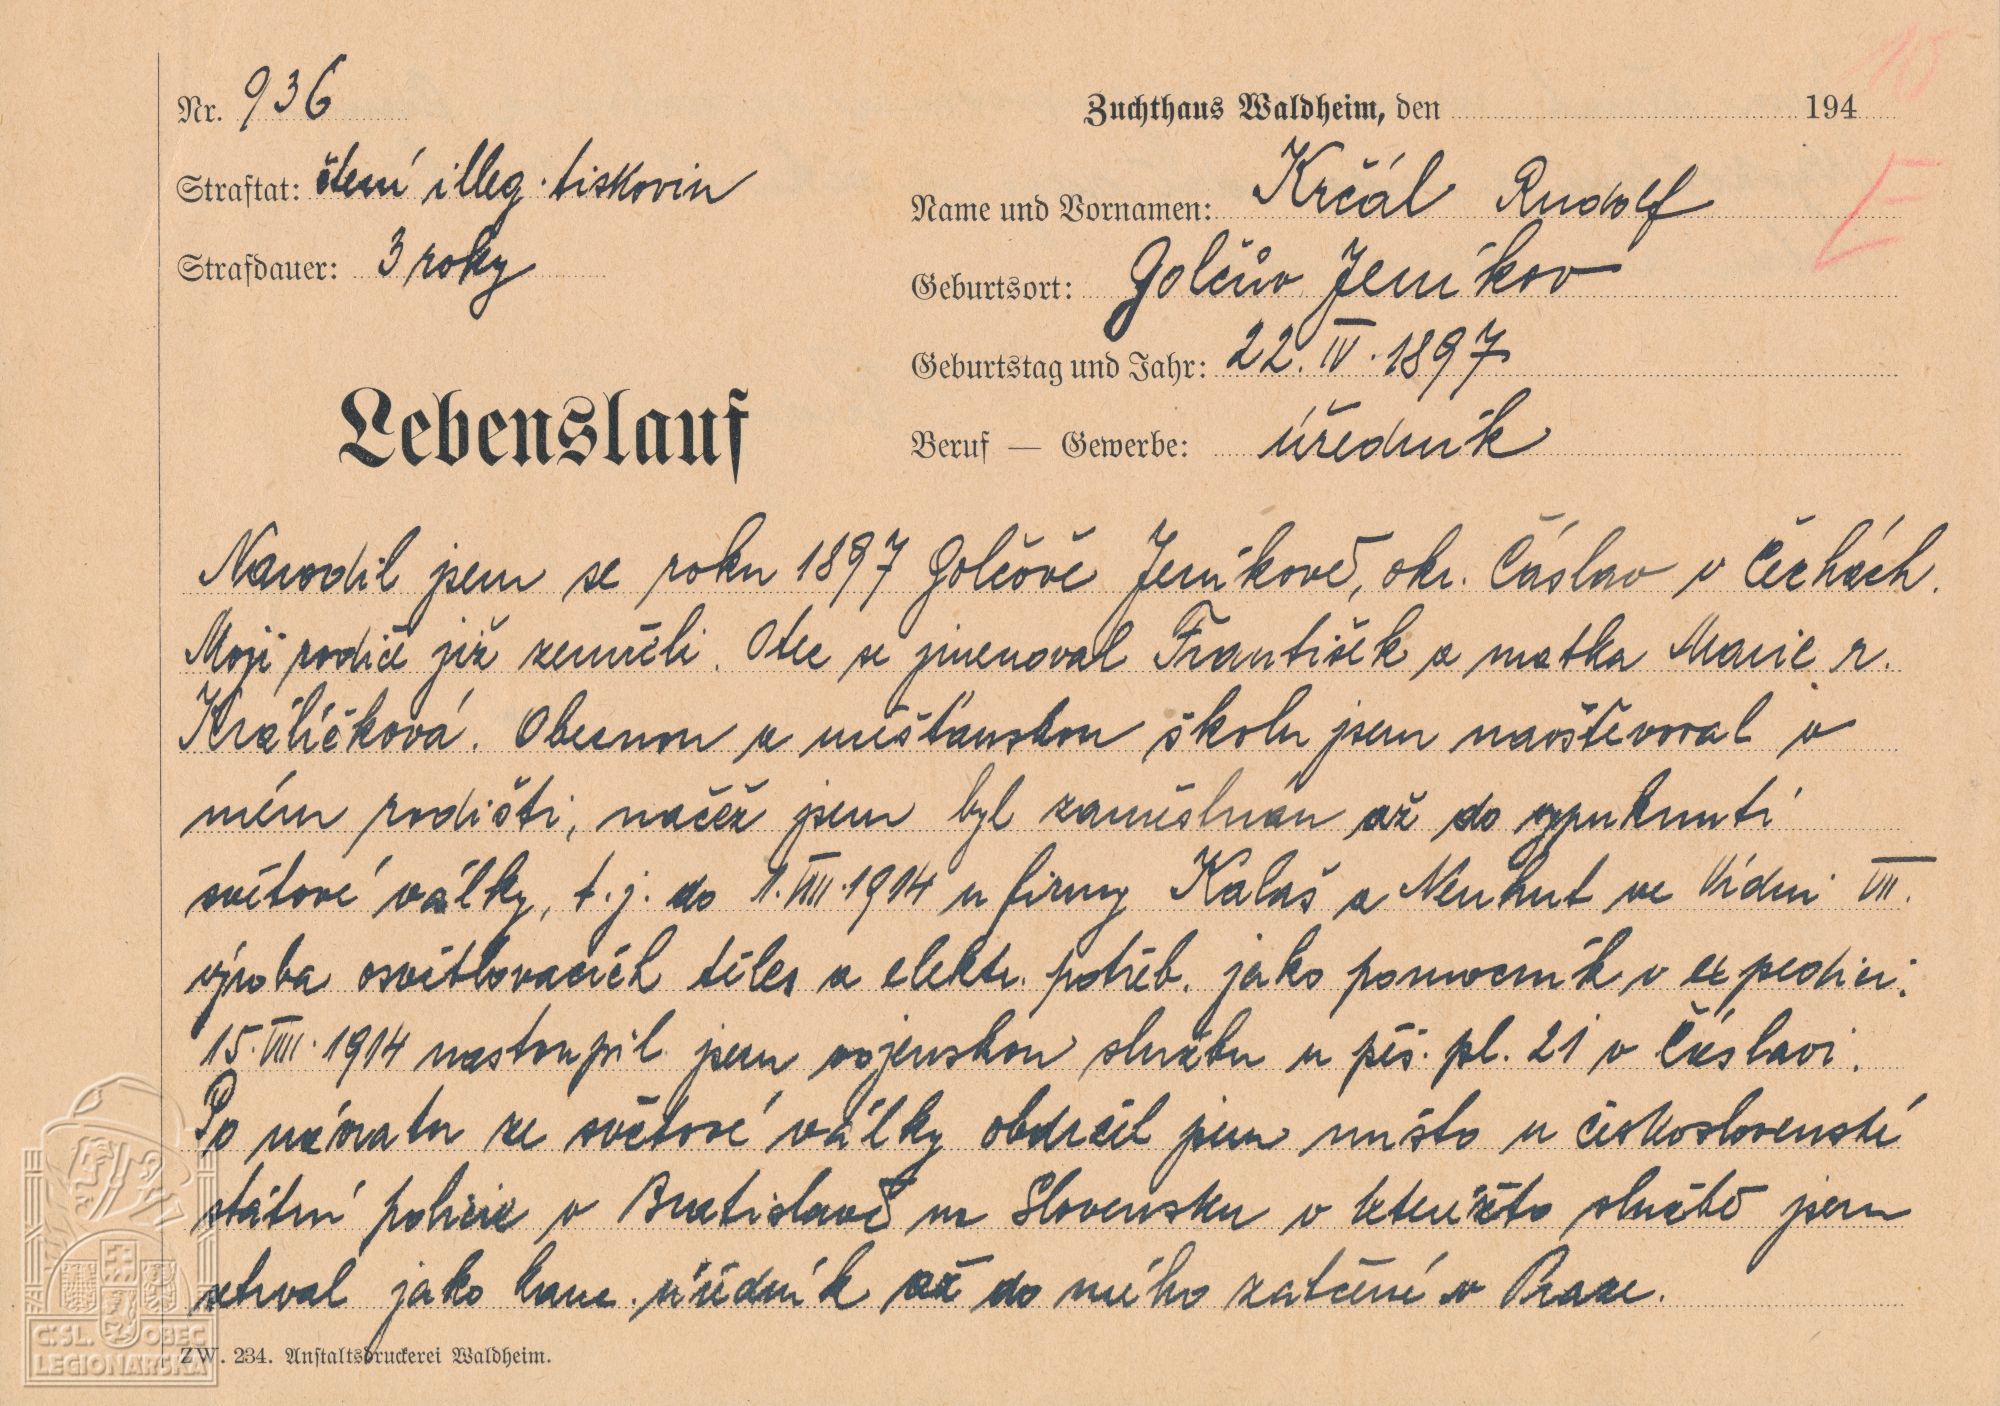 Nr. 936
Zuchthaus Waldheim, den 194
Straftat: čtení illeg. tiskovin
Name und Vornamen: Krčál Rudolf
Strafdauer: 3 roky
Geburtsort: Golčův Jeníkov
Geburtstag und Jahr: 22. IV. 1897
Lebenslauf
Beruf — Gewerbe: úředník
Narodil jsem se roku 1897 Golčově Jeníkově, okr. Čáslav v Čechách.
Moji rodiče již zemřeli. Otec se jmenoval František a matka Marie r.
Králíčková. Obecnou a měšťanskou školu jsem navštěvoval v
mém rodišti, načež jsem byl zaměstnán až do vypuknutí
světové války, t. j. do 1. VIII. 1914 u firmy Kalaš a Neuhut ve Vídni VII.
výroba osvětlovacích těles a elektr. potřeb. jako pomocník v expedici.
15. VIII. 1914 nastoupil jsem vojenskou službu u pěš. pl. 21 v Čáslavi.
Po návratu ze světové války obdržel jsem místo u československé
státní policie v Bratislavě na Slovensku v kteréžto službě jsem
setrval jako kanc. úředník až do mého zatčení v Praze.
ZW. 234. Anstaltsdruckerei Waldheim.
Č.SL. OBEC
LEGIONÁŘSKÁ